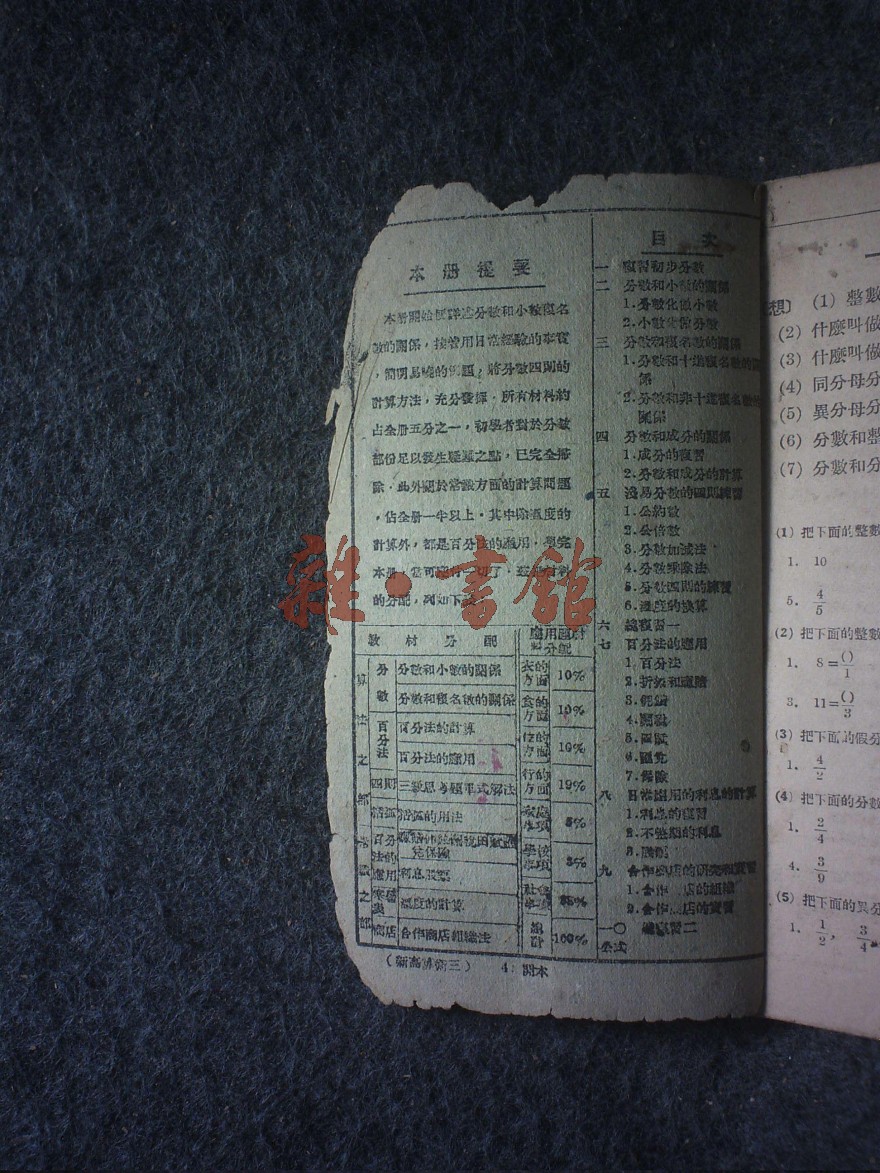 本册提要
本册開始便詳述分數和小數複名
數的關係，接着用日常經驗的事實
，簡明易曉的例題，將分數四則的
計算方法，充分發揮．所有材料約
占全册五分之一，初學者對於分數
部份足以發生疑難之點，已完全掃
除．此外關於常識方面的計算問題
，佔全册一半以上．其中除溫度的
計算外，都是百分法的應用．學完
本册，
的分配，列如下
教材分配
應用題材
分配
算法之部
分數
分數和小數的關係
衣的方面
10%
分數和複名數的關係
食的方面
10%
百分法
百分法的計算
住的方面
10%
百分法的應用
行的方面
四則
括弧
括弧的用法
家庭事項
5%
常識之部
百分法的應用
學校事項
利息
溫度的計算
總計
100%
商店
合作商店組織法
（新高算術三）
目次
一 複習初步分數
二 分數和小數的關係
1.分數化做小數
2.小數化做分數
三 分數和複名數的關係
1.分數和十進複名數的關
係
2.分數和非十進複名數的
關係
四 分數和成分的關係
1.成分的複習
2.分數和成分的計算
五 淺易分數的四則練習
1.公約數
2.公倍數
3.分數加減法
4.分數乘除法
5.分數四則的練習
6.溫度的換算
六 總複習一
七 百分法的應用
1.百分法
2.折扣和賺賠
7.保險
八 日常應用的利息的計算
1.利息的複習
九 合作商店的研究和實習
1.合作商店的組織
2.合作商店的實習
一〇 總複習二
公式
想〕 (1) 整數
(2) 什麼叫做
(3) 什麼叫做
(4) 同分母分
(5) 異分母分
(6) 分數和整
(7) 分數和分
(1) 把下面的整數
1. 10
5. 4/5
(2) 把下面的整數
1. 8=()/1
3. 11=()/3
(3) 把下面的假分
1. 4/2
(4) 把下面的分數
1. 2/4
4. 3/9
(5) 把下面的異分
1. 1/2, 3/4
雜·書館